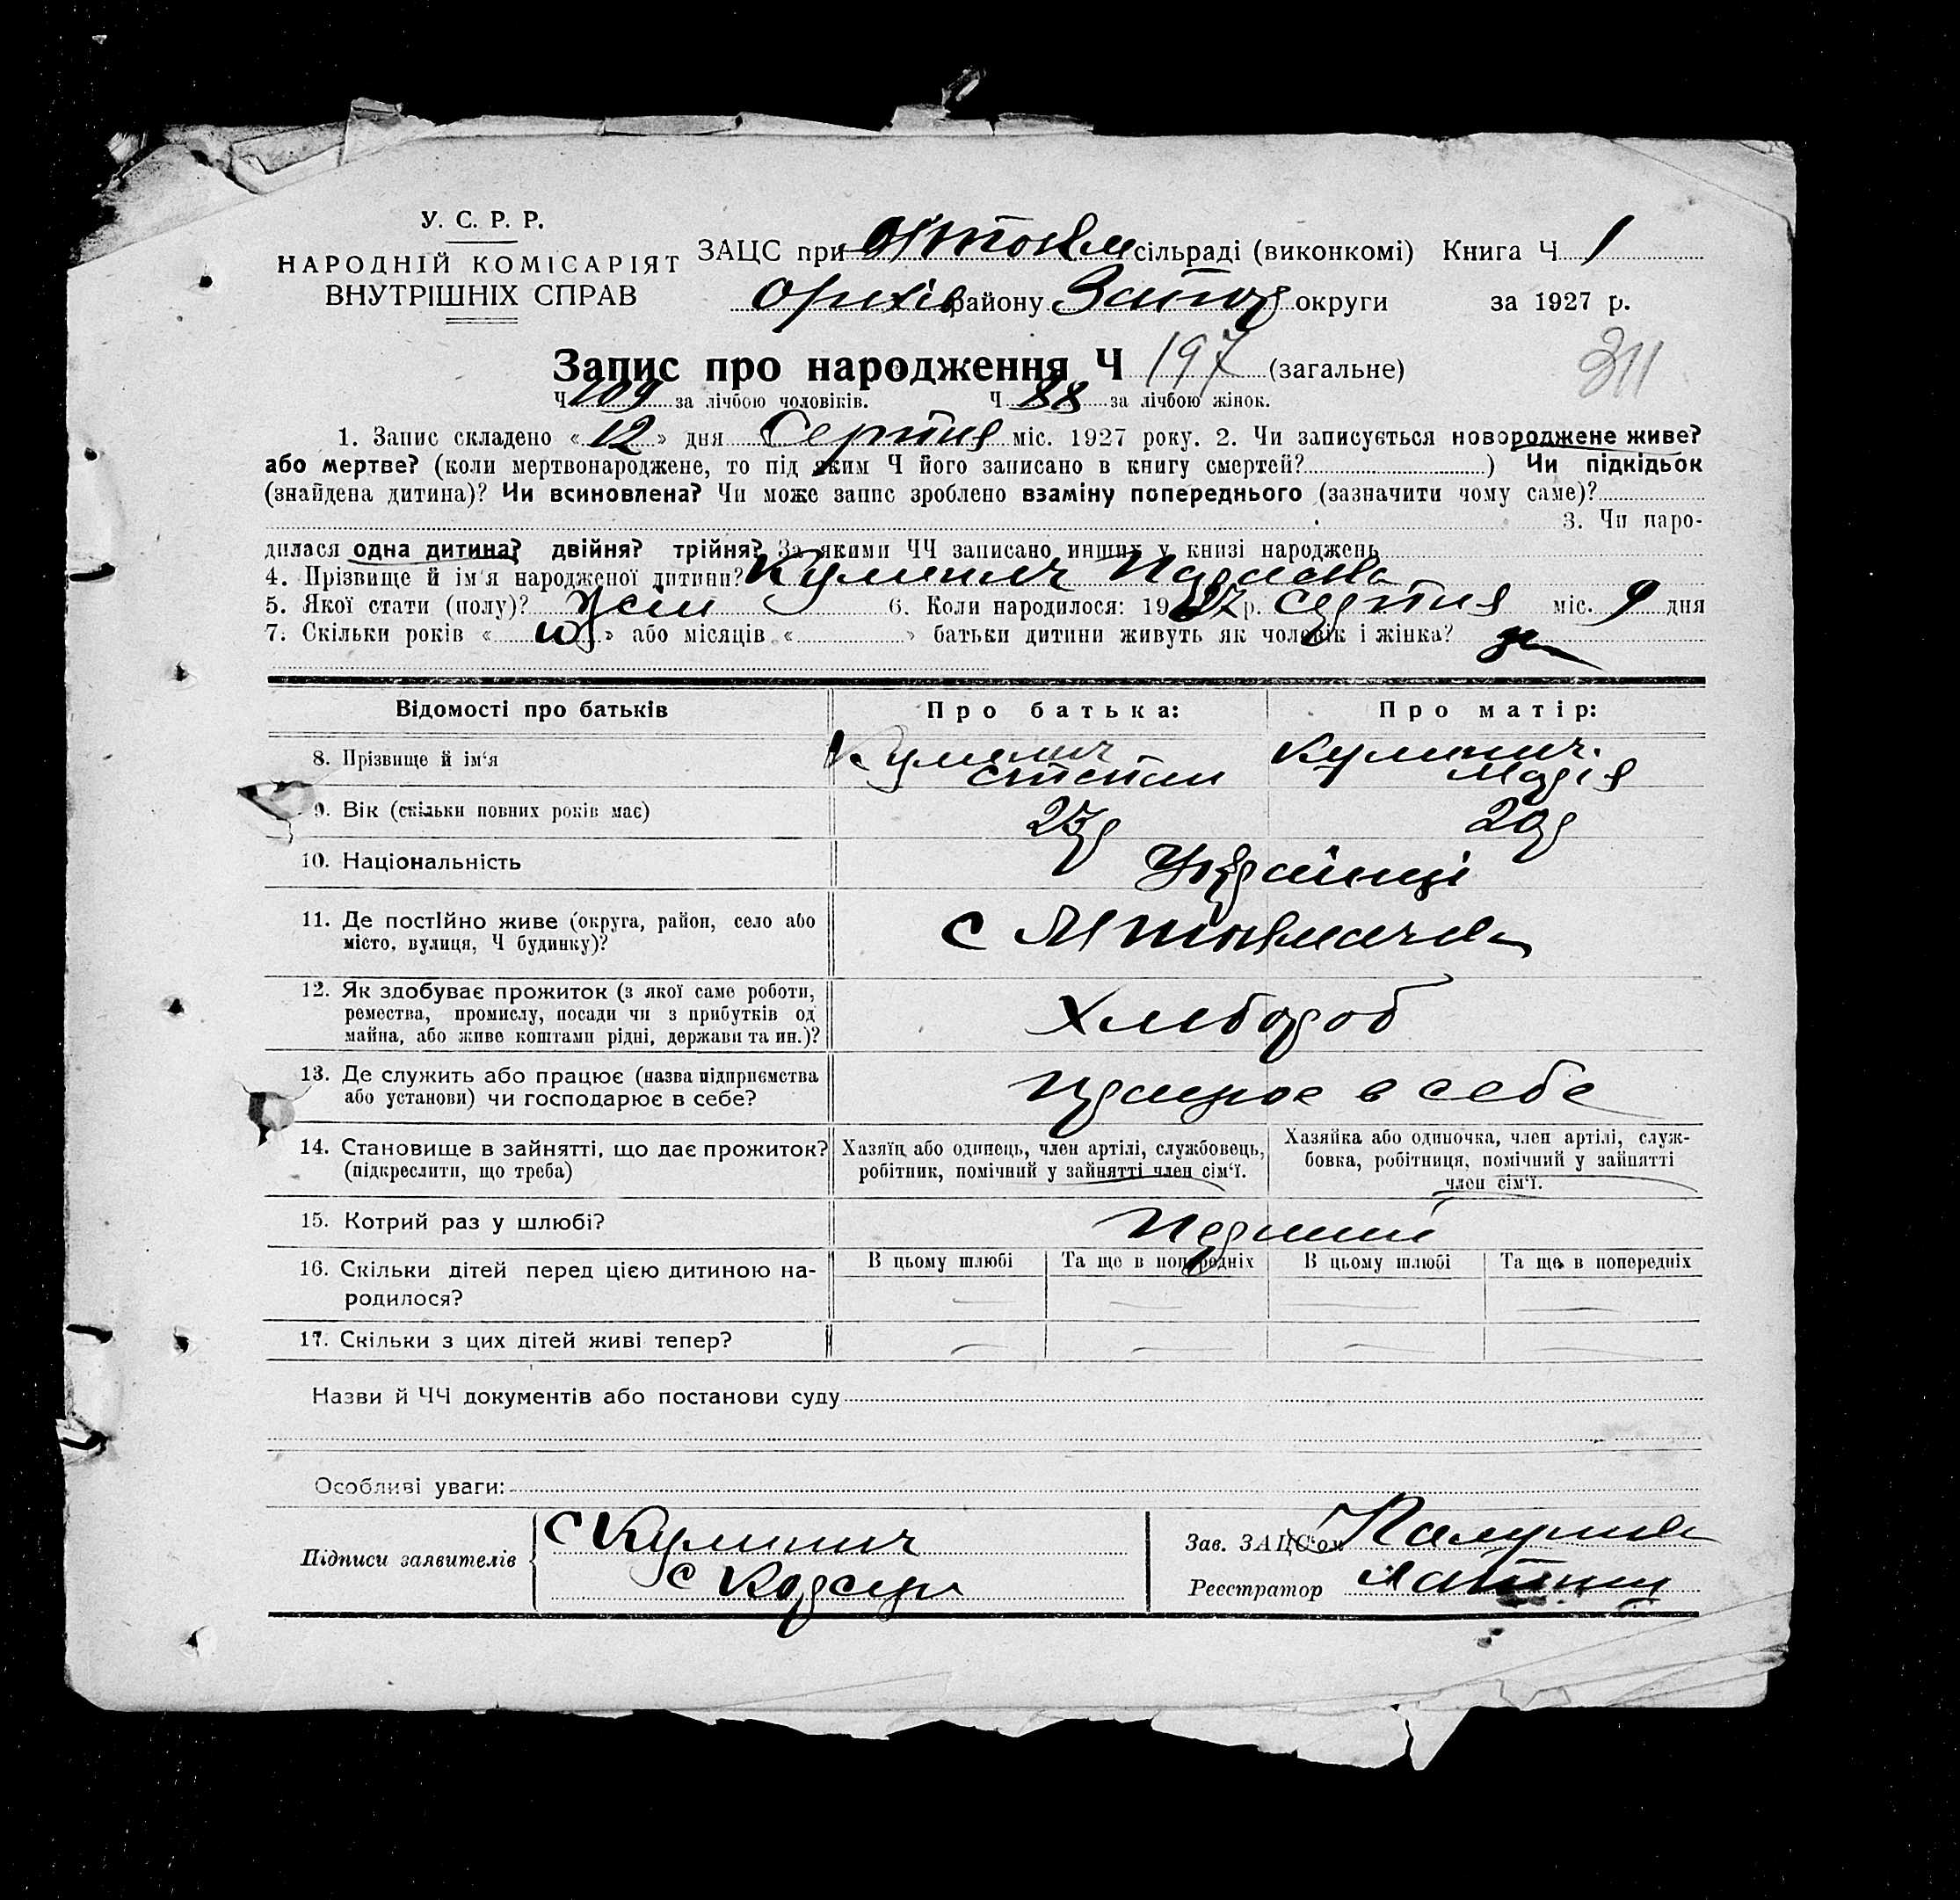 У. С. Р. Р.
НАРОДНІЙ КОМІСАРІЯТ
ВНУТРІШНІХ СПРАВ
ЗАЦС при сільраді (виконкомі) Книга Ч 1
Оріхів району Запор округи за 1927 р.
Запис про народження Ч 197 (загальне)
311
Ч 109 за лічбою чоловіків. Ч 88 за лічбою жінок.
1. Запис складено « 12 » дня Серпня міс. 1927 року. 2. Чи записується новороджене живе?
або мертве? (коли мертвонароджене, то під яким Ч його записано в книгу смертей? ) Чи підкідьок
(знайдена дитина)? Чи всиновлена? Чи може запис зроблено взаміну попереднього (зазначити чому саме)?
3. Чи наро-
дилася одна дитина? двійня? трійня? За якими ЧЧ записано инших у книзі народжень
4. Прізвище й ім'я народженої дитини? Кулинич
5. Якої стати (полу)? жін 6. Коли народилося: 1927 р. серпня міс. 9 дня
7. Скільки років « » або місяців « » батьки дитини живуть як чоловік і жінка?
Відомості про батьків Про батька: Про матір:
8. Прізвище й ім'я Кулинич Степан Кулинич Марія
9. Вік (скільки повних років має) 27р 20р
10. Національність Українці
11. Де постійно живе (округа, район, село або
місто, вулиця, Ч будинку)? С
12. Як здобуває прожиток (з якої саме роботи,
ремества, промислу, посади чи з прибутків од
майна, або живе коштами рідні, держави та ин.)? Хлібороб
13. Де служить або працює (назва підприємства
або установи) чи господарює в себе? працює в себе
14. Становище в зайнятті, що дає прожиток?
(підкреслити, що треба)
Хазяїн або одинець, член артілі, службовець,
робітник, помічний у зайнятті член сім'ї.
Хазяйка або одиночка, член артілі, служ-
бовка, робітниця, помічний у зайнятті
член сім'ї.
15. Котрий раз у шлюбі? Перший
16. Скільки дітей перед цією дитиною на-
родилося?
В цьому шлюбі Та ще в попередніх В цьому шлюбі Та ще в попередніх
— — — —
17. Скільки з цих дітей живі тепер? — — — —
Назви й ЧЧ документів або постанови суду
Особливі уваги:
Підписи заявителів С Кулинич
Зав. ЗАЦС'ом
Реєстратор